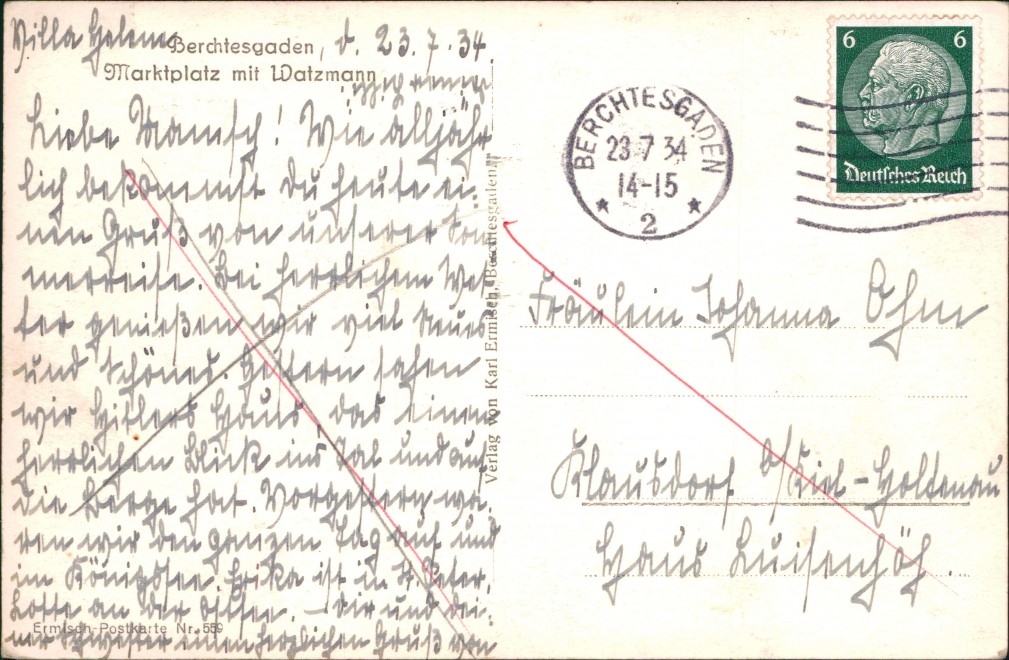 Villa Helene
Berchtesgaden, d. 23.7.34
Marktplatz mit Watzmann
Liebe Mamsch! Wie alljähr-
lich bekommst Du heute ei-
nen Gruß von unserer Som-
merreise. Bei herrlichem Wet-
ter genießen wir viel Neues
und Schönes. Gestern sahen
wir Hitlers Haus, das einen
herrlichen Blick ins Tal und auf
die Berge hat. Vorgestern wa-
ren wir den ganzen Tag auf und
im Königssee. Erika ist in St. Peter,
Lotte an der Ostsee. – Dir und dei-
ner Schwester einen herzlichen Gruß von
Ermisch-Postkarte Nr. 559
Verlag von Karl Ermisch, Berchtesgaden
BERCHTESGADEN
23.7.34
14-15
* 2 *
6 6
Deutsches Reich
Fräulein Johanna Ohm
Klausdorf b/Kiel-Holtenau
Haus Luisenhöh